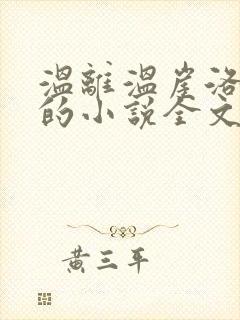 溫離溫崖洛
的小說全文
黃三平